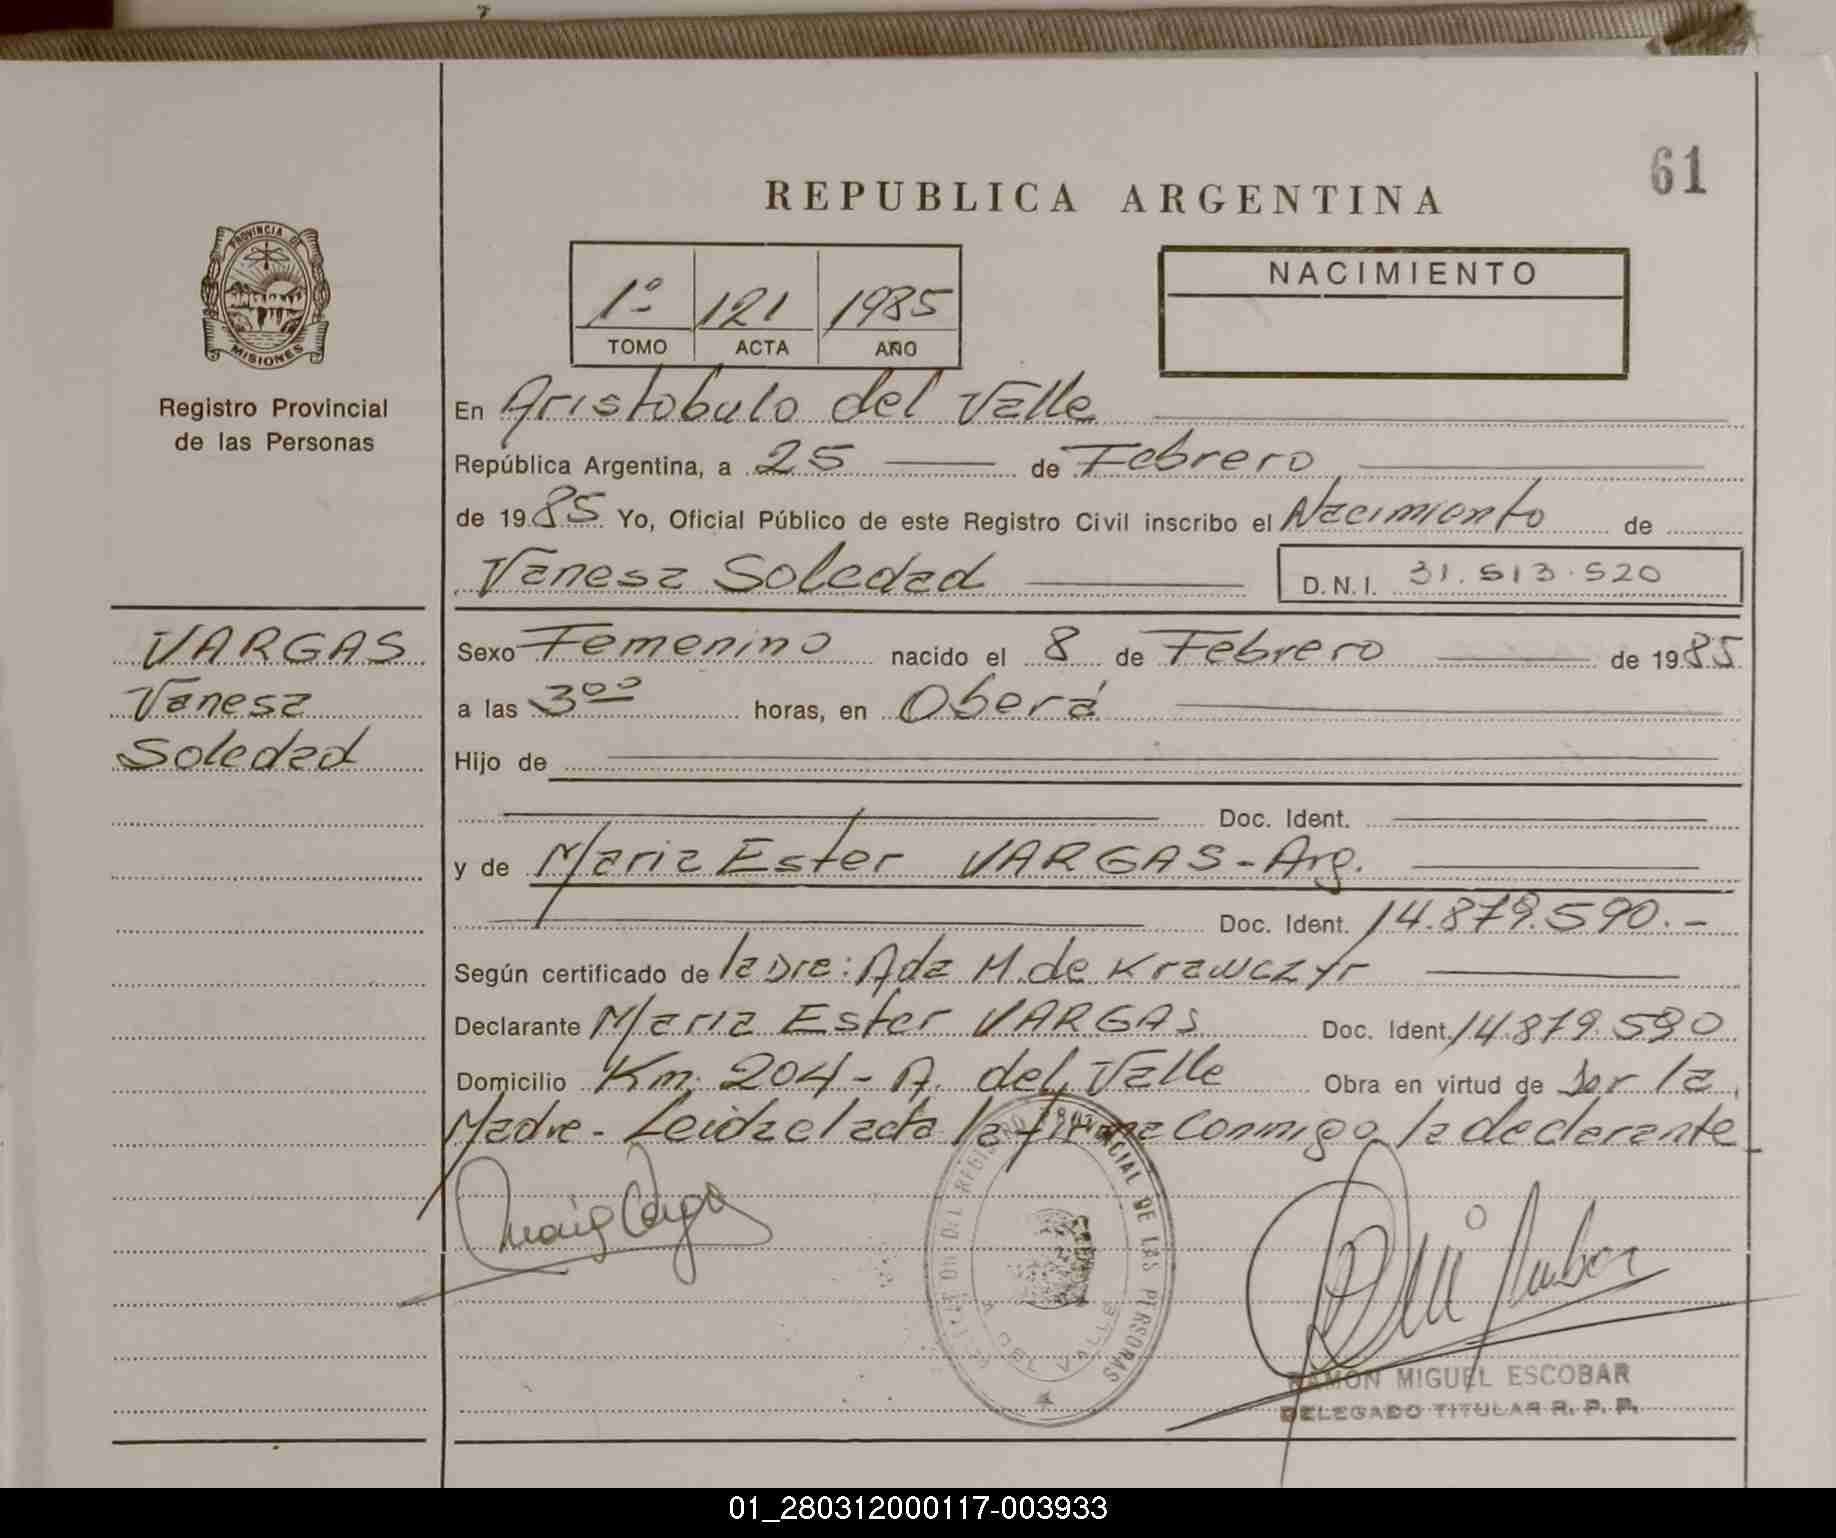 61
REPUBLICA ARGENTINA
PROVINCIA DE
MISIONES
Registro Provincial
de las Personas
1º 121 1985
TOMO ACTA AÑO
NACIMIENTO
En Aristobulo del Valle
República Argentina, a 25 de Febrero
de 1985 Yo, Oficial Público de este Registro Civil inscribo el Nacimiento de
Vanesa Soledad D.N.I. 31.513.520
VARGAS
Vanesa
Soledad
Sexo Femenino nacido el 8 de Febrero de 1985
a las 3ºº horas, en Oberá
Hijo de
Doc. Ident.
y de Maria Ester VARGAS - Arg.
Doc. Ident. 14.879.590.-
Según certificado de la Dra: Ada M. de Krawczyr
Declarante Maria Ester VARGAS Doc. Ident. 14.879.590
Domicilio Km. 204 - A. del Valle Obra en virtud de Ser la
Madre - Leida el acta la firma conmigo la declarante
DEL REGISTRO PROVINCIAL DE LAS PERSONAS
A. DEL VALLE
RAMON MIGUEL ESCOBAR
DELEGADO TITULAR R. P. P.
01_280312000117-003933